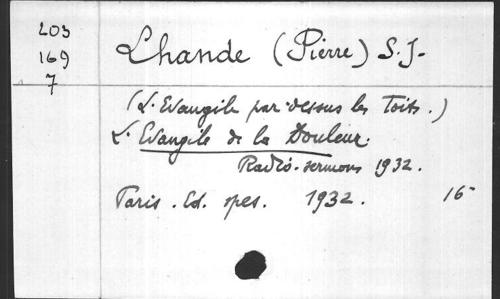 203
169
7
Lhande (Pierre) S.J.
(L'Evangile par-dessus les Toits.)
L'Evangile de la Douleur.
Radio-sermons 1932.
Paris. Ed. spes. 1932. 16